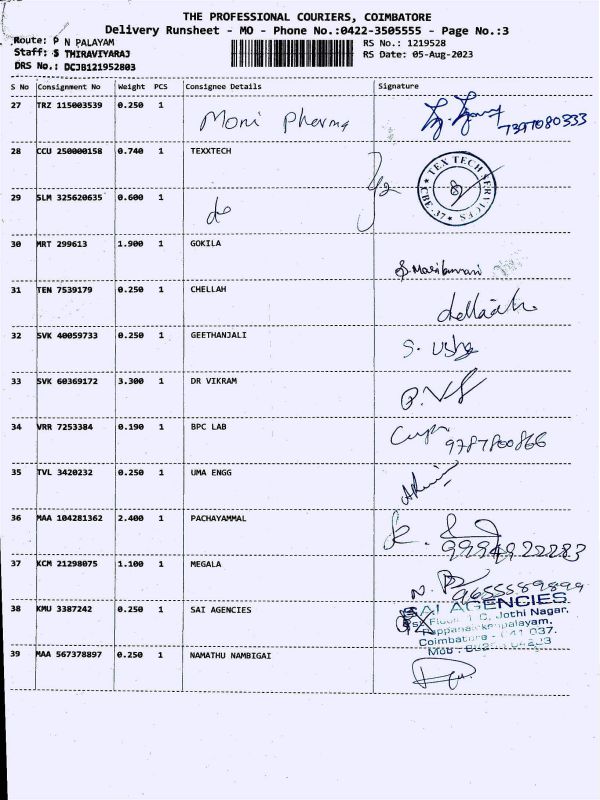 THE PROFESSIONAL COURIERS, COIMBATORE
Delivery Runsheet - MO - Phone No.:0422-3505555 - Page No.:3
Route: P N PALAYAM
RS No.: 1219528
Staff: S THIRAVIYARAJ
RS Date: 05-Aug-2023
DRS No.: DCJB121952803
S No Consignment No Weight PCS Consignee Details Signature
27 TRZ 115003539 0.250 1 Moni Pharma
7397080333
28 CCU 250000158 0.740 1 TEXXTECH
TEX TECH SERVICES CBE-37
29 SLM 325620635 0.600 1 do
30 MRT 299613 1.900 1 GOKILA
31 TEN 7539179 0.250 1 CHELLAH
32 SVK 40059733 0.250 1 GEETHANJALI S. Usha
33 SVK 60369172 3.300 1 DR VIKRAM
34 VRR 7253384 0.190 1 BPC LAB
9787800866
35 TVL 3420232 0.250 1 UMA ENGG
36 MAA 104281362 2.400 1 PACHAYAMMAL
9994922283
37 KCM 21298075 1.100 1 MEGALA
9655589899
38 KMU 3387242 0.250 1 SAI AGENCIES
SAI AGENCIES
Floor C, Jothi Nagar,
Coimbatore - 641 037.
Mob
39 MAA 567378897 0.250 1 NAMATHU NAMBIGAI